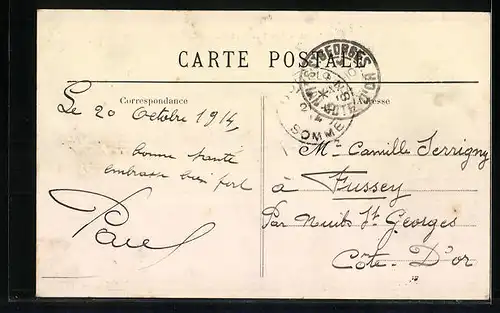 CARTE POSTALE
Correspondance
Adresse
Le 20 Octobre 1914,
bonne santé
embrasse bien fort
Paul
Mr Camille Serrigny
à Fussey
Par Nuits St Georges
Côte-D'or
GEORGES
CÔTE-D'OR
SOMME